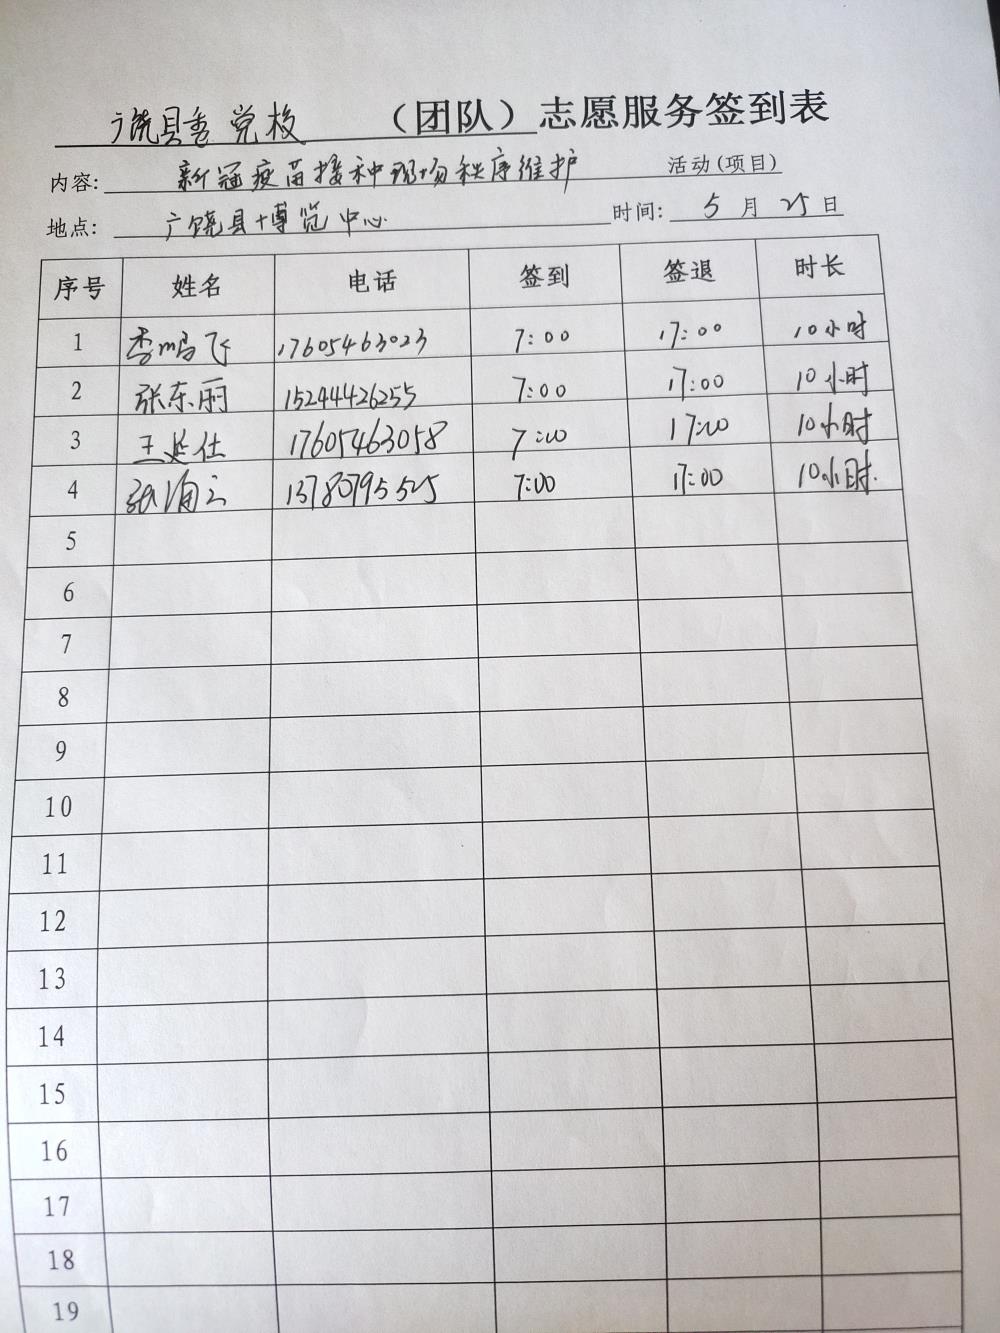 广饶县委党校（团队）志愿服务签到表
内容：新冠疫苗接种现场秩序维护 活动（项目）
地点：广饶县博览中心 时间：5月25日
序号 姓名 电话 签到 签退 时长
1 李鸣飞 17605463023 7:00 17:00 10小时
2 张东丽 15244426255 7:00 17:00 10小时
3 王延仕 17605463058 7:00 17:00 10小时
4 7:00 17:00 10小时.
5
6
7
8
9
10
11
12
13
14
15
16
17
18
19